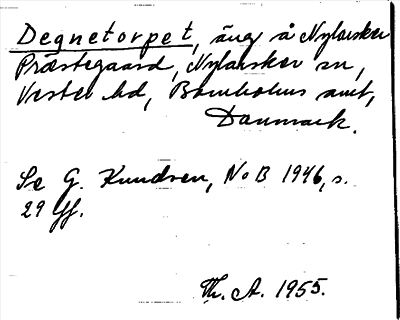 Degnetorpet, äng å Nylarsker
Præstegaard, Nylarsker sn,
Vester hd, Bornholms amt,
Danmark.
Se G. Knudsen, NoB 1946, s.
29 ff.
Th. A. 1955.